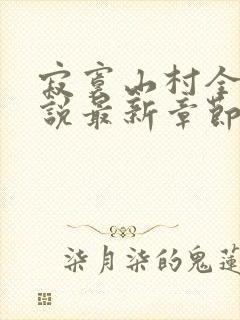 寂寞山村全
說最新章節
柒月柒的鬼蓮